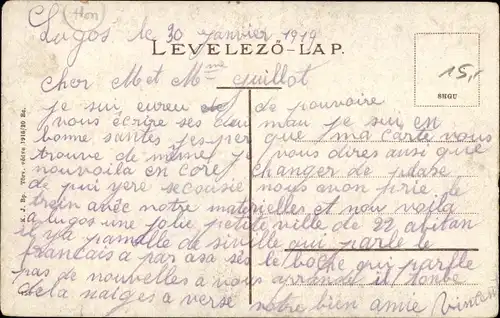 Hon
Lugos le 30 janvier 1919
LEVELEZŐ-LAP.
15,-
SNGU
cher M et Mme Guillot
je sui eureu de pouvoire
vous écrire ses deu mau je sui en
bonne santes jesper que ma carte vous
trouve de même je vous dires ausi que
nouvoila en core changer de plase
de pui yere nous avon prie le
train avec notre materielles et nou voila
a lugos une jolie petite ville de 22 abitan
il y a pa de siville qui parle le
francais a par asa ses le boche qui parlle
pas de nouvelles a vous il tonbe
de la naiges a verse votre bien amie Vincent
K. J. Bp. Törv. védve 1918/20 Sz.